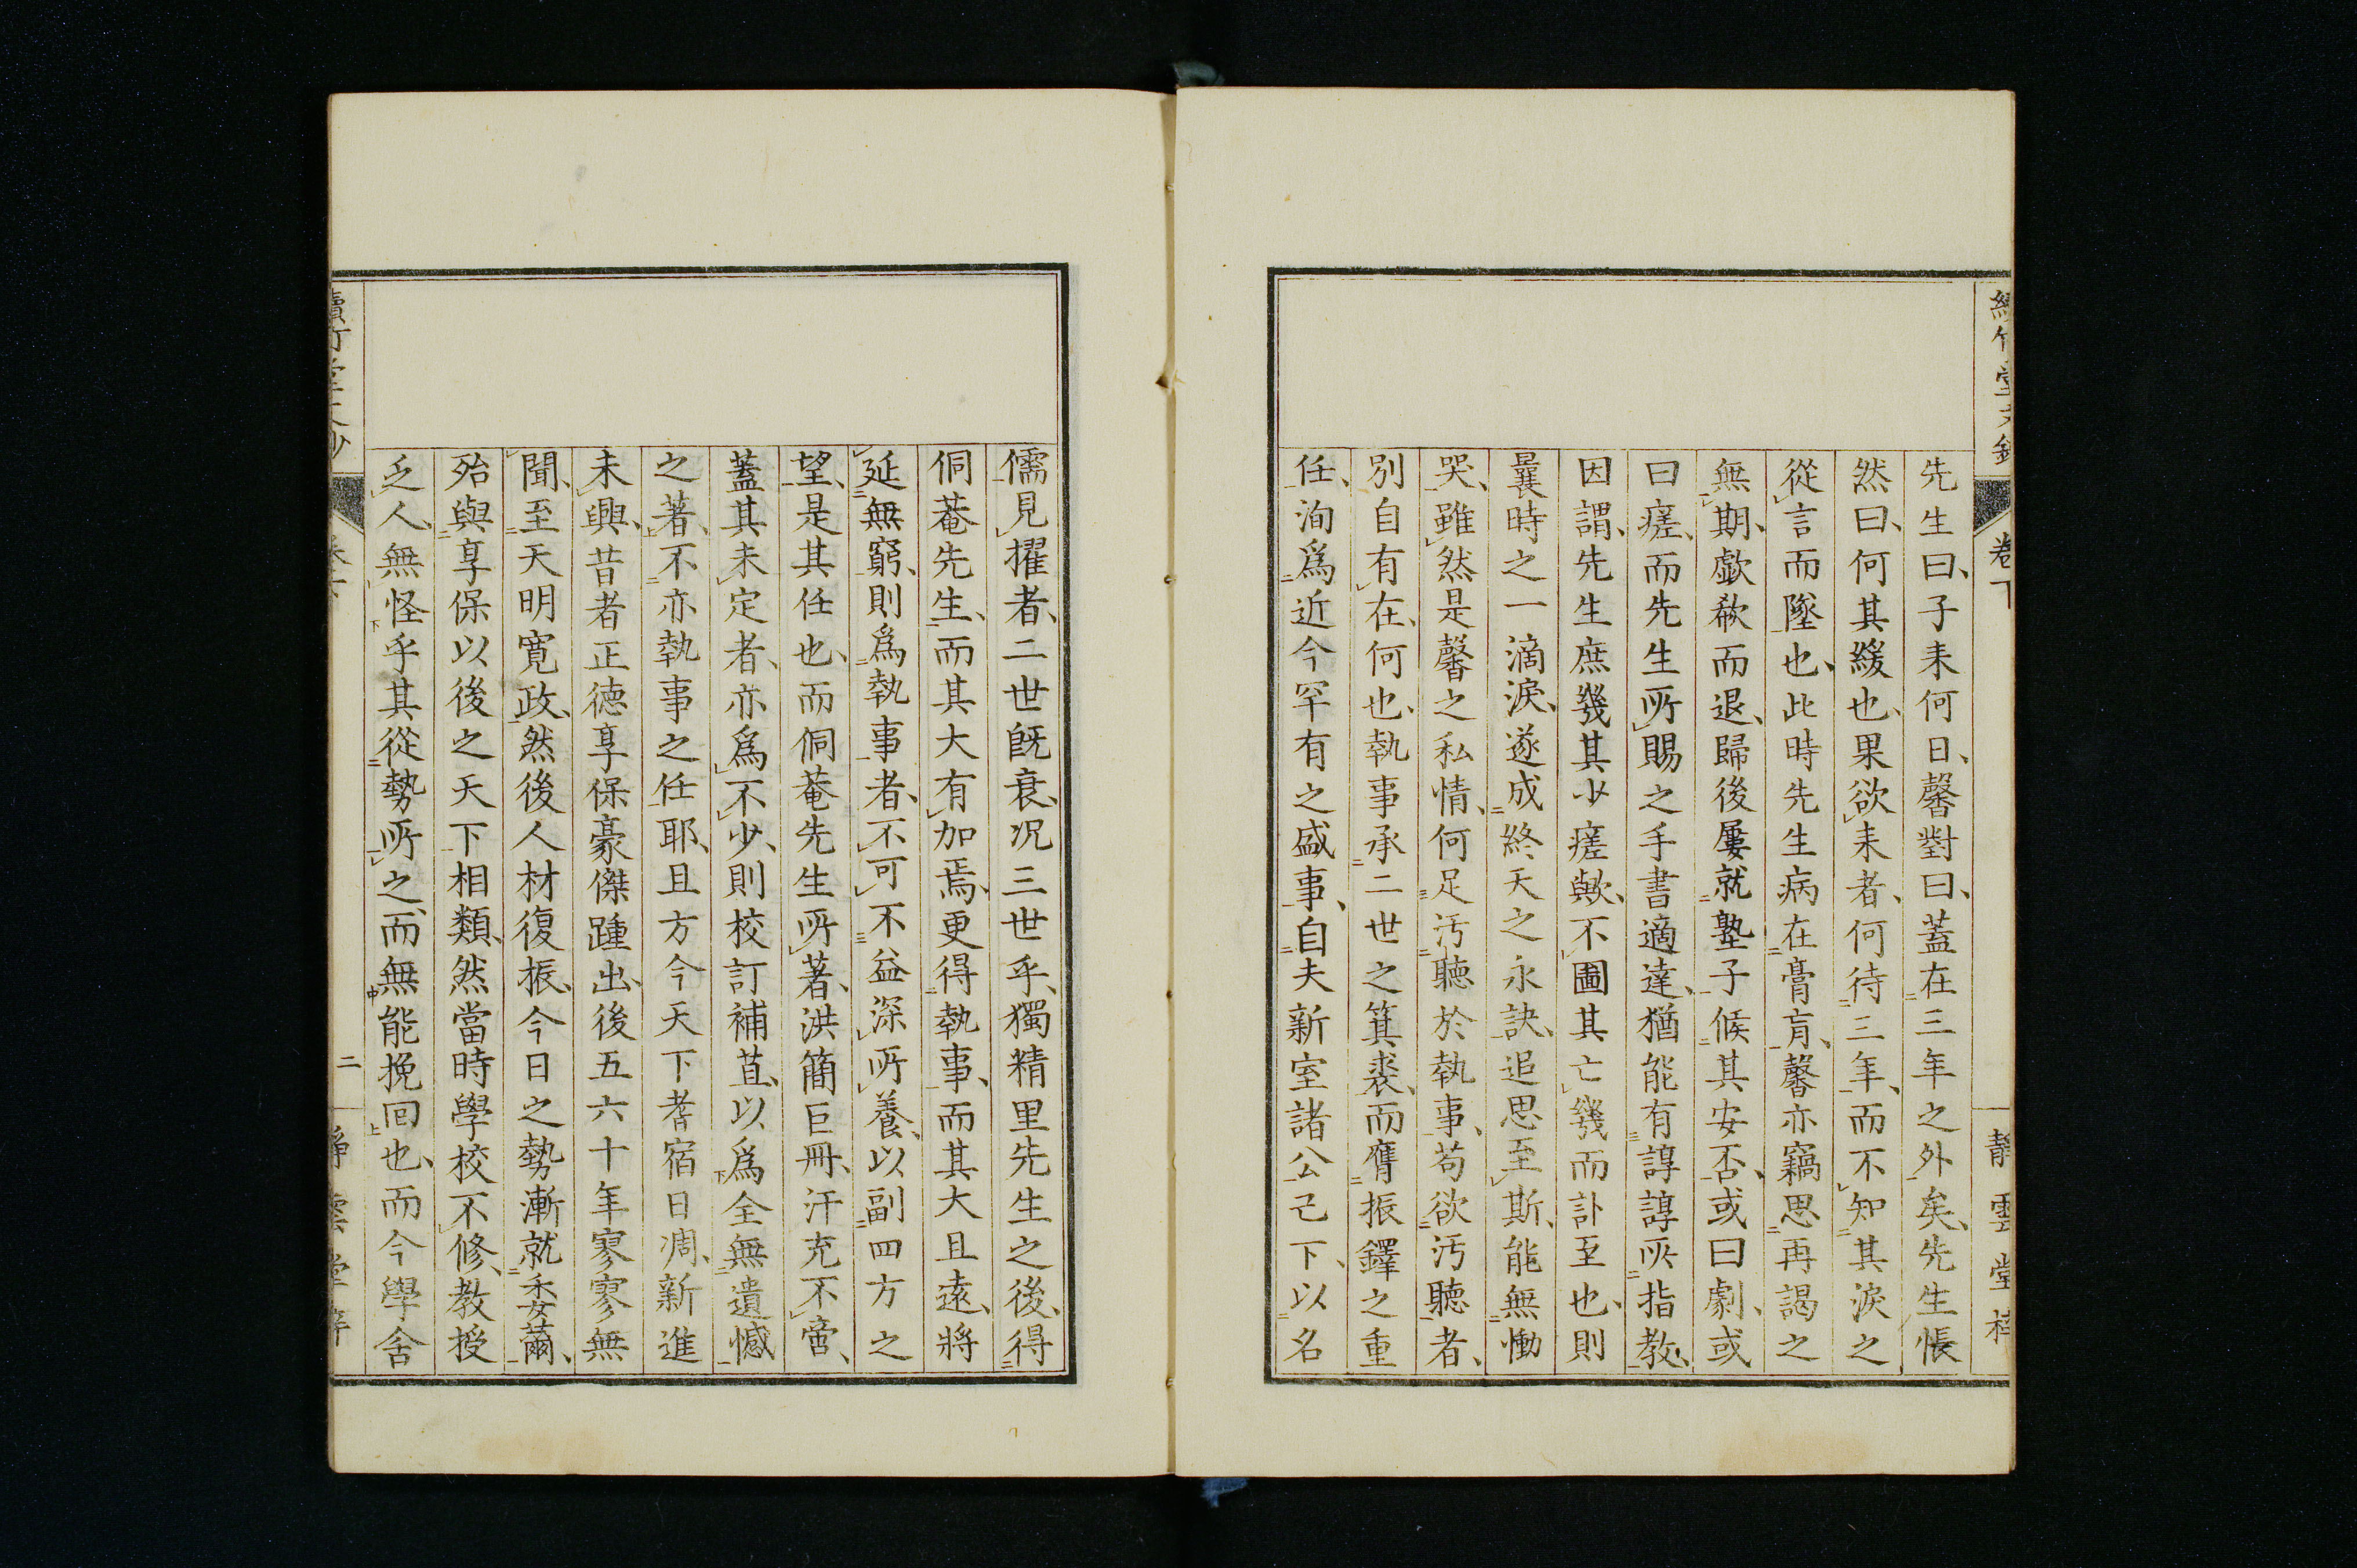 先生曰、子耒何日、馨對曰、蓋在三年之外矣、先生悵
然曰、何其緩也、果欲耒者、何待三年、而不知其淚之
從言而墜也、此時先生病在膏肓、馨亦竊思再謁之
無期、歔欷而退、歸後屢就塾子候其安否、或曰劇、或
曰瘥、而先生所賜之手書適達、猶能有諄諄所指教、
因謂、先生庶幾其少瘥歟、不圖其亡幾而訃至也、則
曩時之一滴淚、遂成終天之永訣、追思至斯、能無慟
哭、雖然是馨之私情、何足汚聽於執事、苟欲汚聽者、
別自有在、何也、執事承二世之箕裘、而膺振鐸之重
任、洵爲近今罕有之盛事、自夫新室諸公已下、以名
儒見擢者、二世既衰、况三世乎、獨精里先生之後、得
侗菴先生、而其大有加焉、更得執事、而其大且遠、將
延無窮、則爲執事者、不可不益深所養、以副四方之
望、是其任也、而侗菴先生所著、洪簡巨冊、汗充不啻、
蓋其未定者、亦爲不少、則校訂補苴、以爲全無遺憾
之著、不亦執事之任耶、且方今天下耆宿日凋、新進
未興、昔者正徳享保豪傑踵出、後五六十年寥寥無
聞、至天明寬政、然後人材復振、今日之勢漸就委薾、
殆與享保以後之天下相類、然當時學校不修、教授
乏人、無怪乎其從勢所之、而無能挽回也、而今學舍
卷下
二